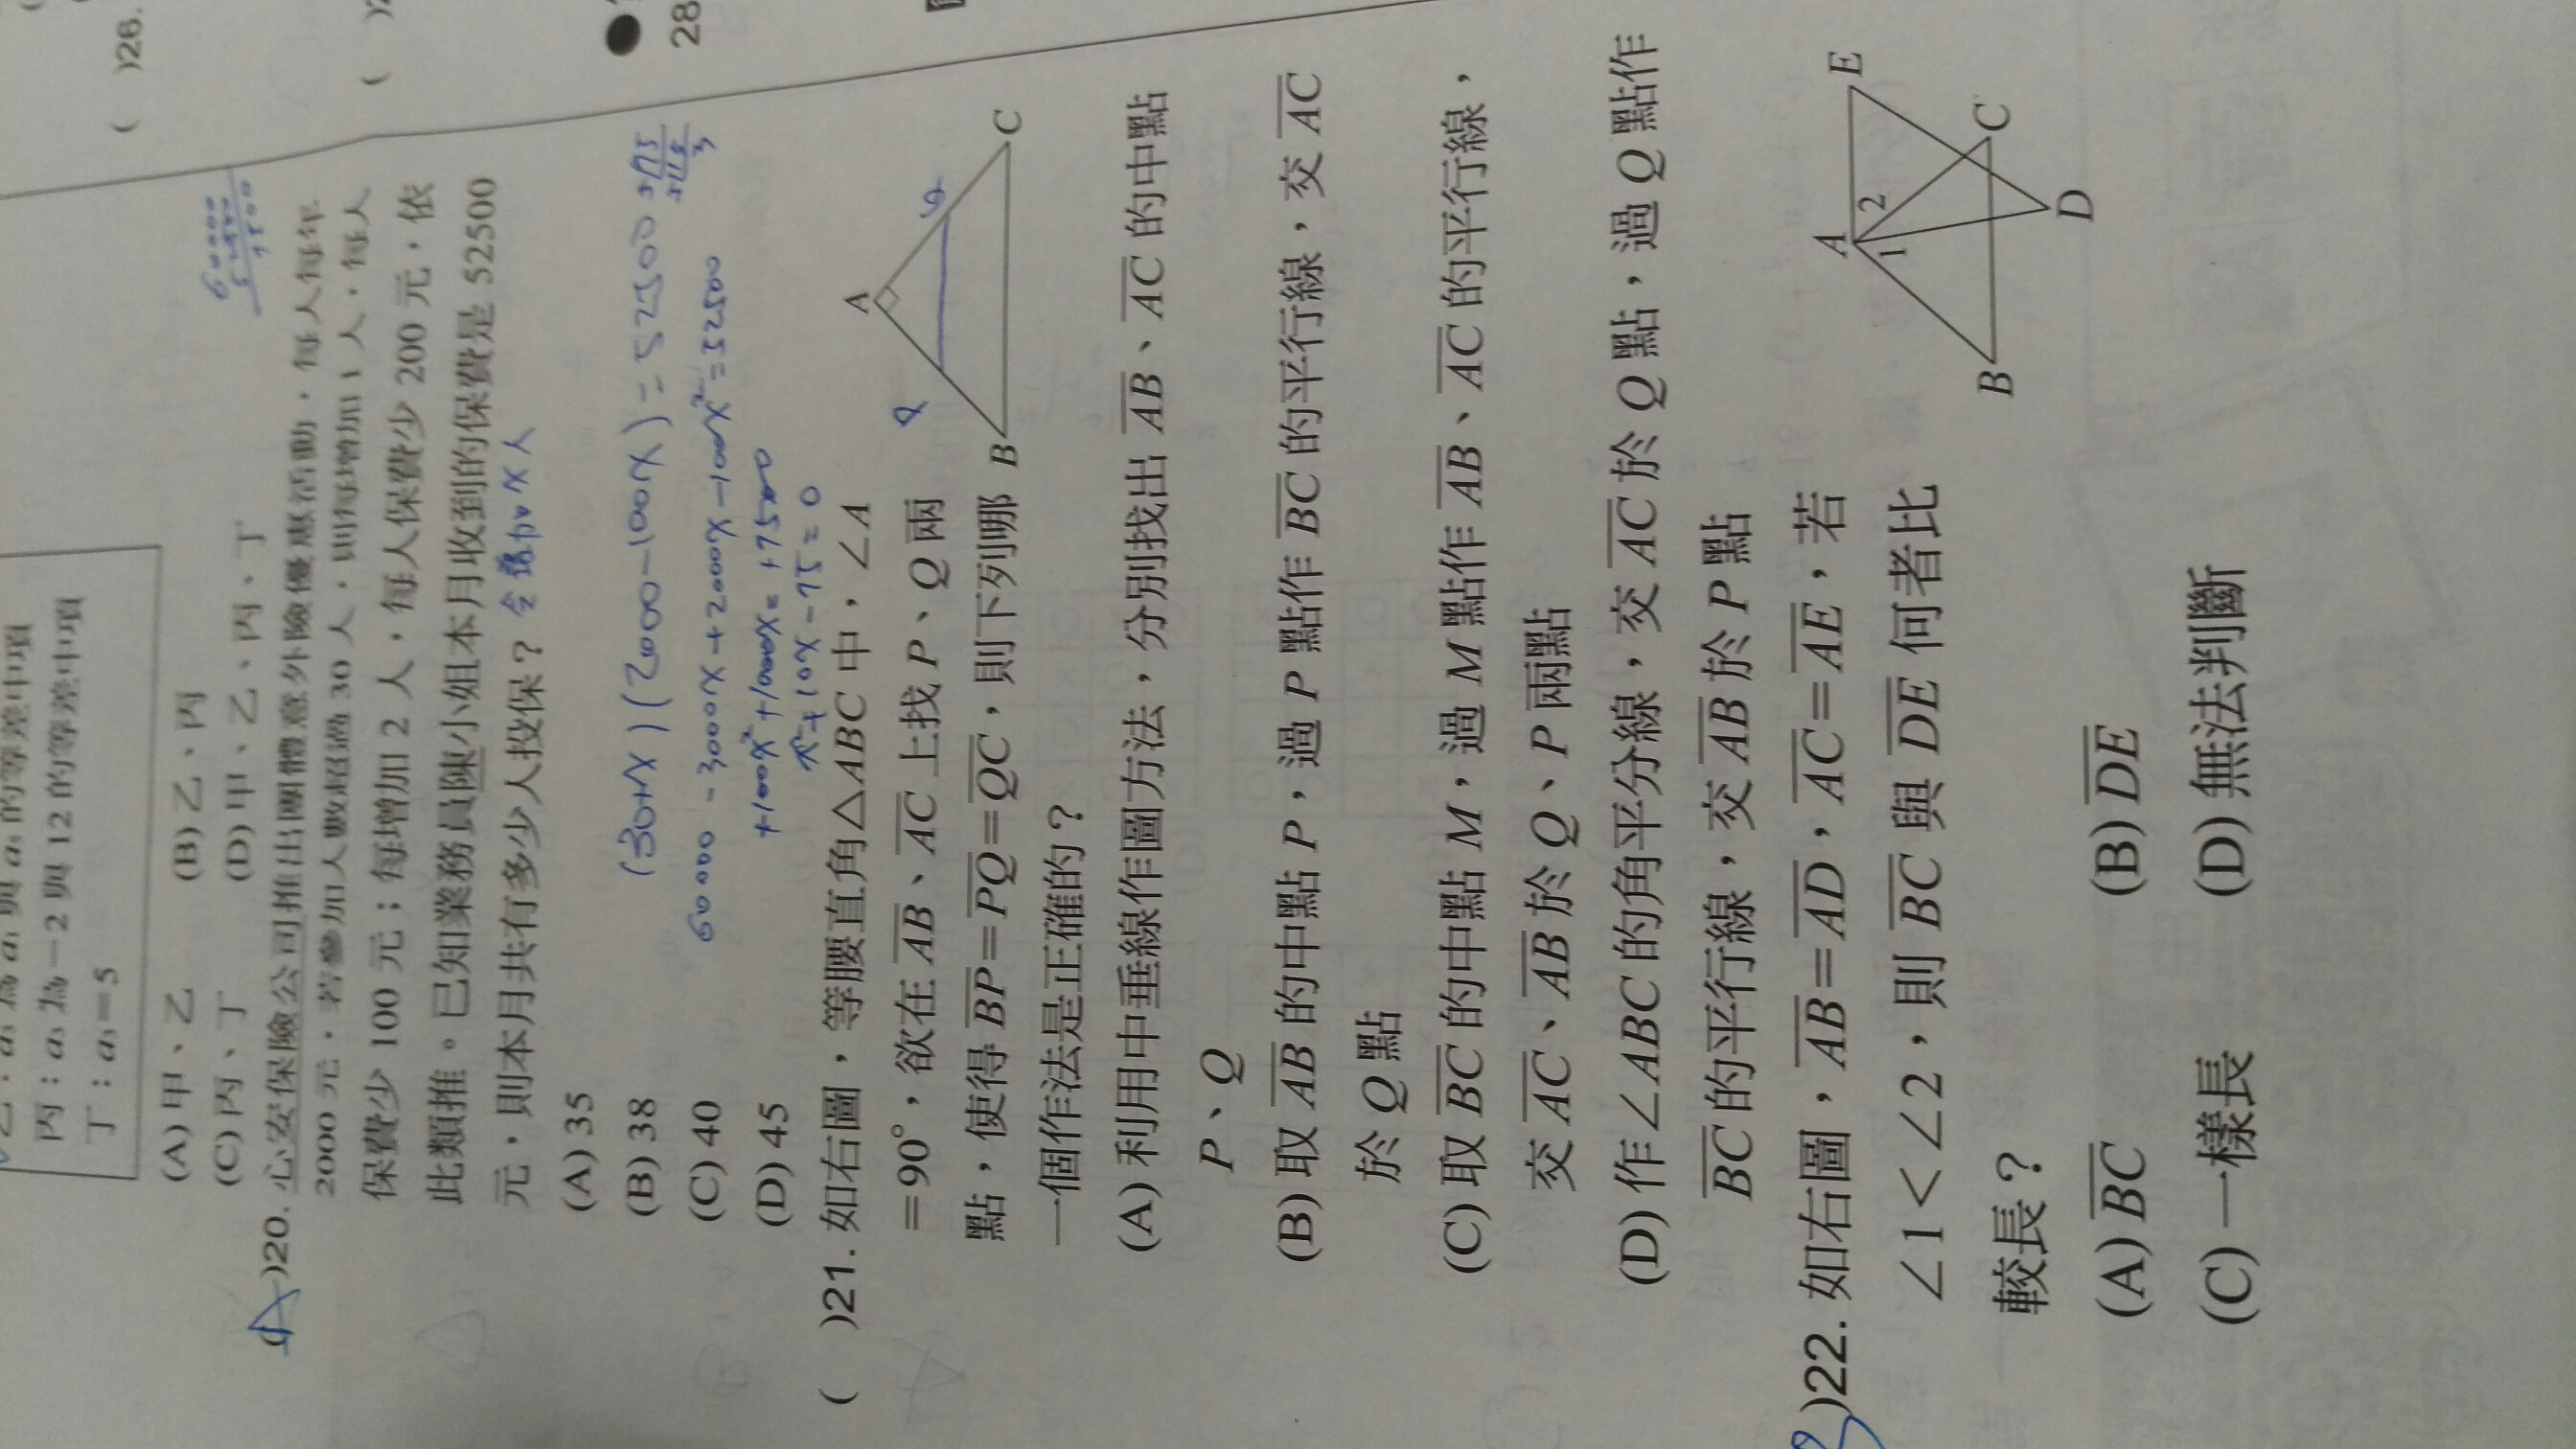 )26.
28
丙：a₅ 為 −2 與 12 的等差中項
丁：a₅=5
(A) 甲、乙 (B) 乙、丙
(C) 丙、丁 (D) 甲、乙、丙、丁
(A)20. 心安保險公司推出團體意外險優惠活動，每人每年
2000 元，若參加人數超過 30 人，則每增加 1 人，每人
保費少 100 元；每增加 2 人，每人保費少 200 元，依
此類推。已知業務員陳小姐本月收到的保費是 52500
元，則本月共有多少人投保？ 令增加 x 人
(A) 35
(B) 38
(C) 40
(D) 45
(30+x)(2000-100x)=52500
60000-3000x+2000x-100x²=52500
+100x²+1000x=+7500
x²+10x-75=0
( )21. 如右圖，等腰直角△ABC 中，∠A
=90°，欲在 AB、AC 上找 P、Q 兩
點，使得 BP=PQ=QC，則下列哪
一個作法是正確的？
A
B
C
(A) 利用中垂線作圖方法，分別找出 AB、AC 的中點
P、Q
(B) 取 AB 的中點 P，過 P 點作 BC 的平行線，交 AC
於 Q 點
(C) 取 BC 的中點 M，過 M 點作 AB、AC 的平行線，
交 AC、AB 於 Q、P 兩點
(D) 作∠ABC 的角平分線，交 AC 於 Q 點，過 Q 點作
BC 的平行線，交 AB 於 P 點
)22. 如右圖，AB=AD，AC=AE，若
∠1<∠2，則 BC 與 DE 何者比
較長？
(A) BC (B) DE
(C) 一樣長 (D) 無法判斷
A
E
1
2
B
C
D